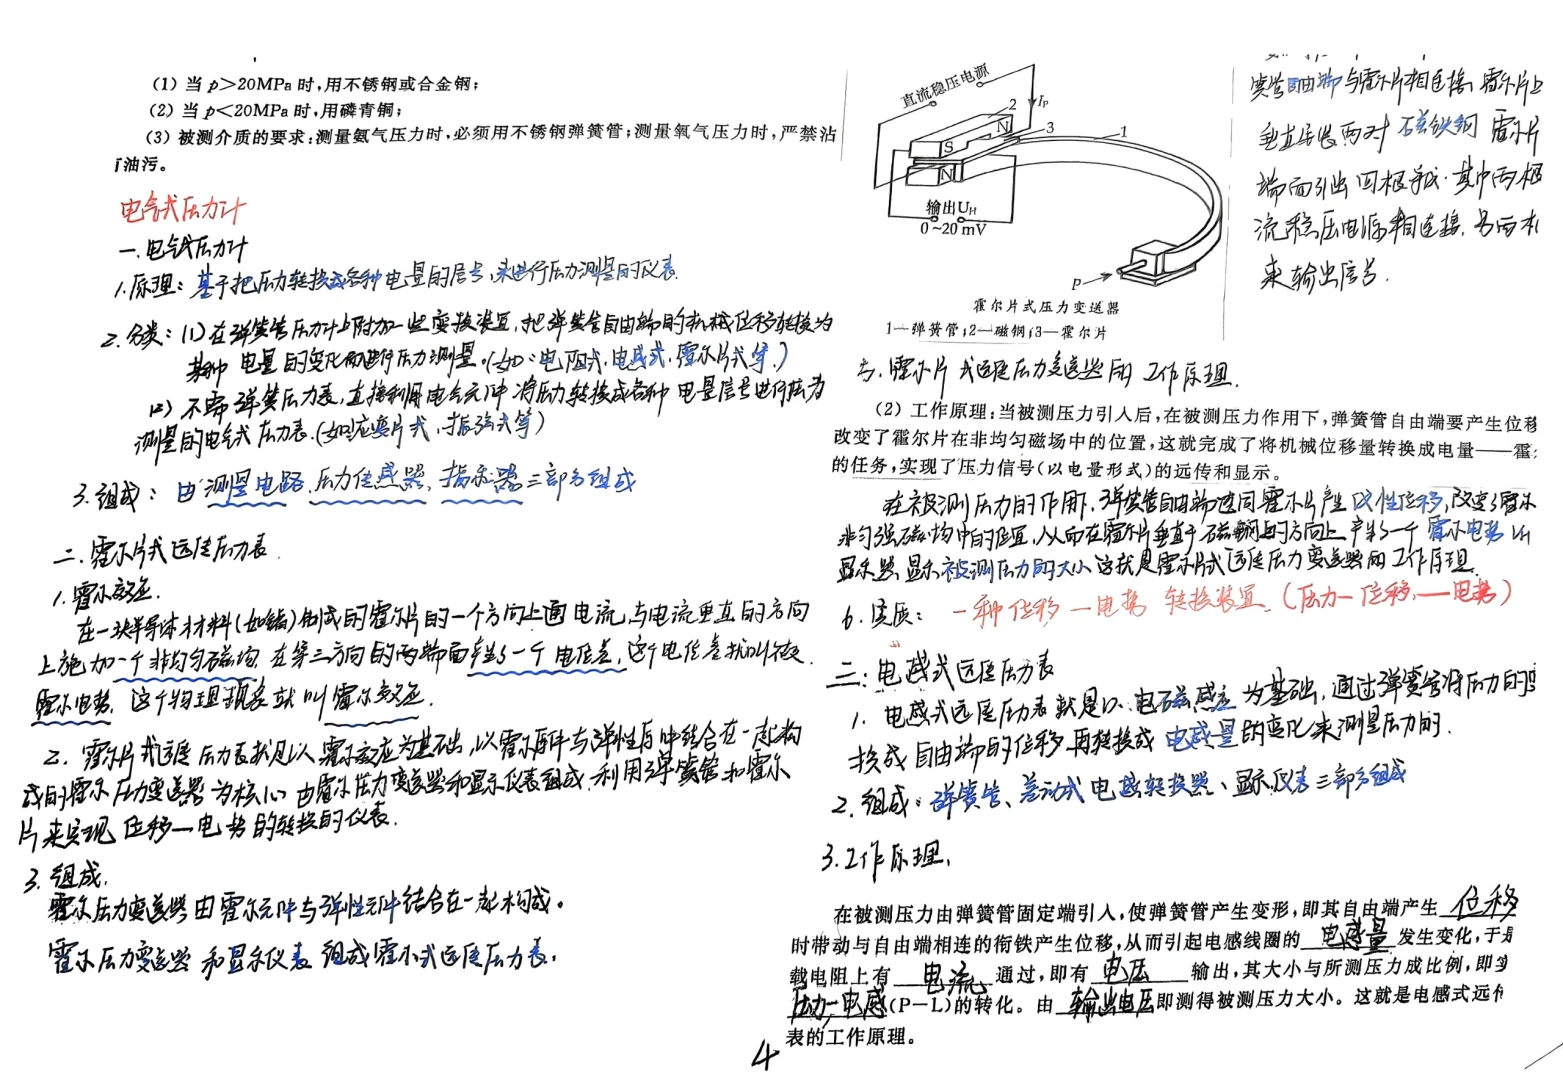 (1) 当 p>20MPa 时,用不锈钢或合金钢;
(2) 当 p<20MPa 时,用磷青铜;
(3) 被测介质的要求:测量氨气压力时,必须用不锈钢弹簧管;测量氧气压力时,严禁沾
油污。
电气式压力计
一.电气式压力计
1.原理:基于把压力转换成各种电量的信号,来进行压力测量的仪表.
2.分类:(1)在弹簧管压力计上附加一些变换装置,把弹簧管自由端的机械位移转换为
某种 电量的变化而进行压力测量.(如:电阻式,电感式,霍尔片式等.)
(2) 不需弹簧压力表,直接利用电气元件将压力转换成各种 电量信号进行压力
测量的电气式压力表.(如应变片式,振弦式等)
3.组成: 由 测量电路、压力传感器、指示器三部分组成
二.霍尔片式远传压力表.
1.霍尔效应.
在一块半导体材料(如锗)制成的霍尔片的一个方向上通电流,与电流垂直的方向
上施加一个非均匀磁场,在第三方向的两端面产生了一个电位差,这个电位差就叫做
霍尔电势,这个物理现象就叫霍尔效应.
2.霍尔片式远传压力表就是以霍尔效应为基础,以霍尔元件与弹性元件结合在一起构
成的霍尔压力变送器为核心 由霍尔压力变送器和显示仪表组成,利用弹簧管和霍尔
片来实现 位移—电势的转换的仪表.
3.组成.
霍尔压力变送器由霍尔元件与弹性元件结合在一起构成。
霍尔压力变送器 和显示仪表 组成霍尔式远传压力表.
直流稳压电源
Ip
2
N
3
1
S
N
输出UH
0~20 mV
p
霍尔片式压力变送器
1—弹簧管;2—磁钢;3—霍尔片
簧管自由端与霍尔片相连接,霍尔片上
垂直安装两对 磁铁钢 霍尔片
端面引出四根导线.其中两根
流稳压电源相连接.另两根
来输出信号.
5.霍尔片式远传压力变送器的工作原理.
(2) 工作原理:当被测压力引入后,在被测压力作用下,弹簧管自由端要产生位移
改变了霍尔片在非均匀磁场中的位置,这就完成了将机械位移量转换成电量——霍
的任务,实现了压力信号(以电量形式)的远传和显示。
在被测压力的作用下,弹簧管自由端连同霍尔片产生线性位移,改变了霍尔
非匀强磁场中的位置,从而在霍尔片垂直于磁钢的方向上产生了一个霍尔电势
显示器显示被测压力的大小 这就是霍尔片式远传压力变送器的工作原理.
6.实质: 一种位移—电势 转换装置.(压力—位移—电势)
三:电感式远传压力表
1.电感式远传压力表就是以电磁感应为基础,通过弹簧管将压力的
换成自由端的位移 再转换成 电感量的变化来测量压力的.
2.组成:弹簧管、差动式电感转换器、显示仪表三部分组成
3.工作原理.
在被测压力由弹簧管固定端引入,使弹簧管产生变形,即其自由端产生 位移
时带动与自由端相连的衔铁产生位移,从而引起电感线圈的 电感量 发生变化,于是
载电阻上有 电流 通过,即有 电压 输出,其大小与所测压力成比例,即实
压力—电感(P—L)的转化。由 输出电压 即测得被测压力大小。这就是电感式远传
表的工作原理。
4